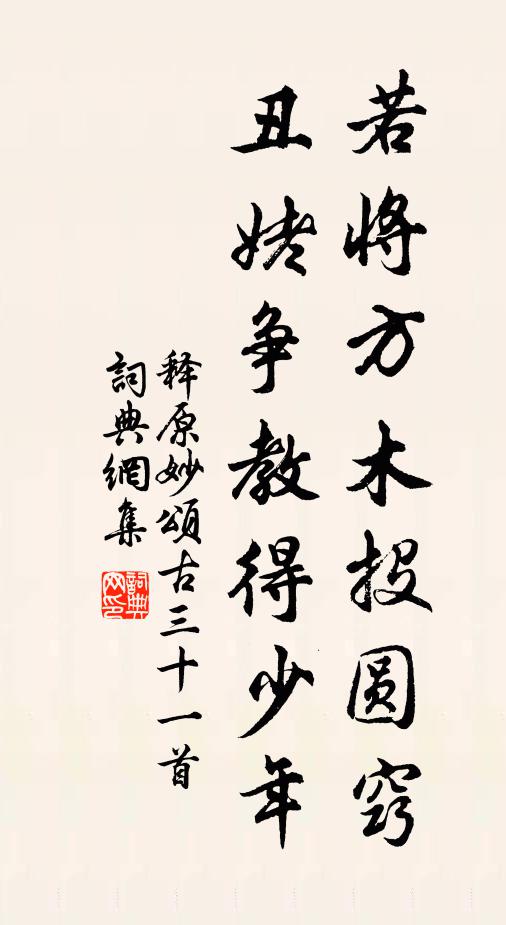 若将方木投圆窍
丑姥争教得少年
释原妙颂古三十一首
詞典網集
詞典網印